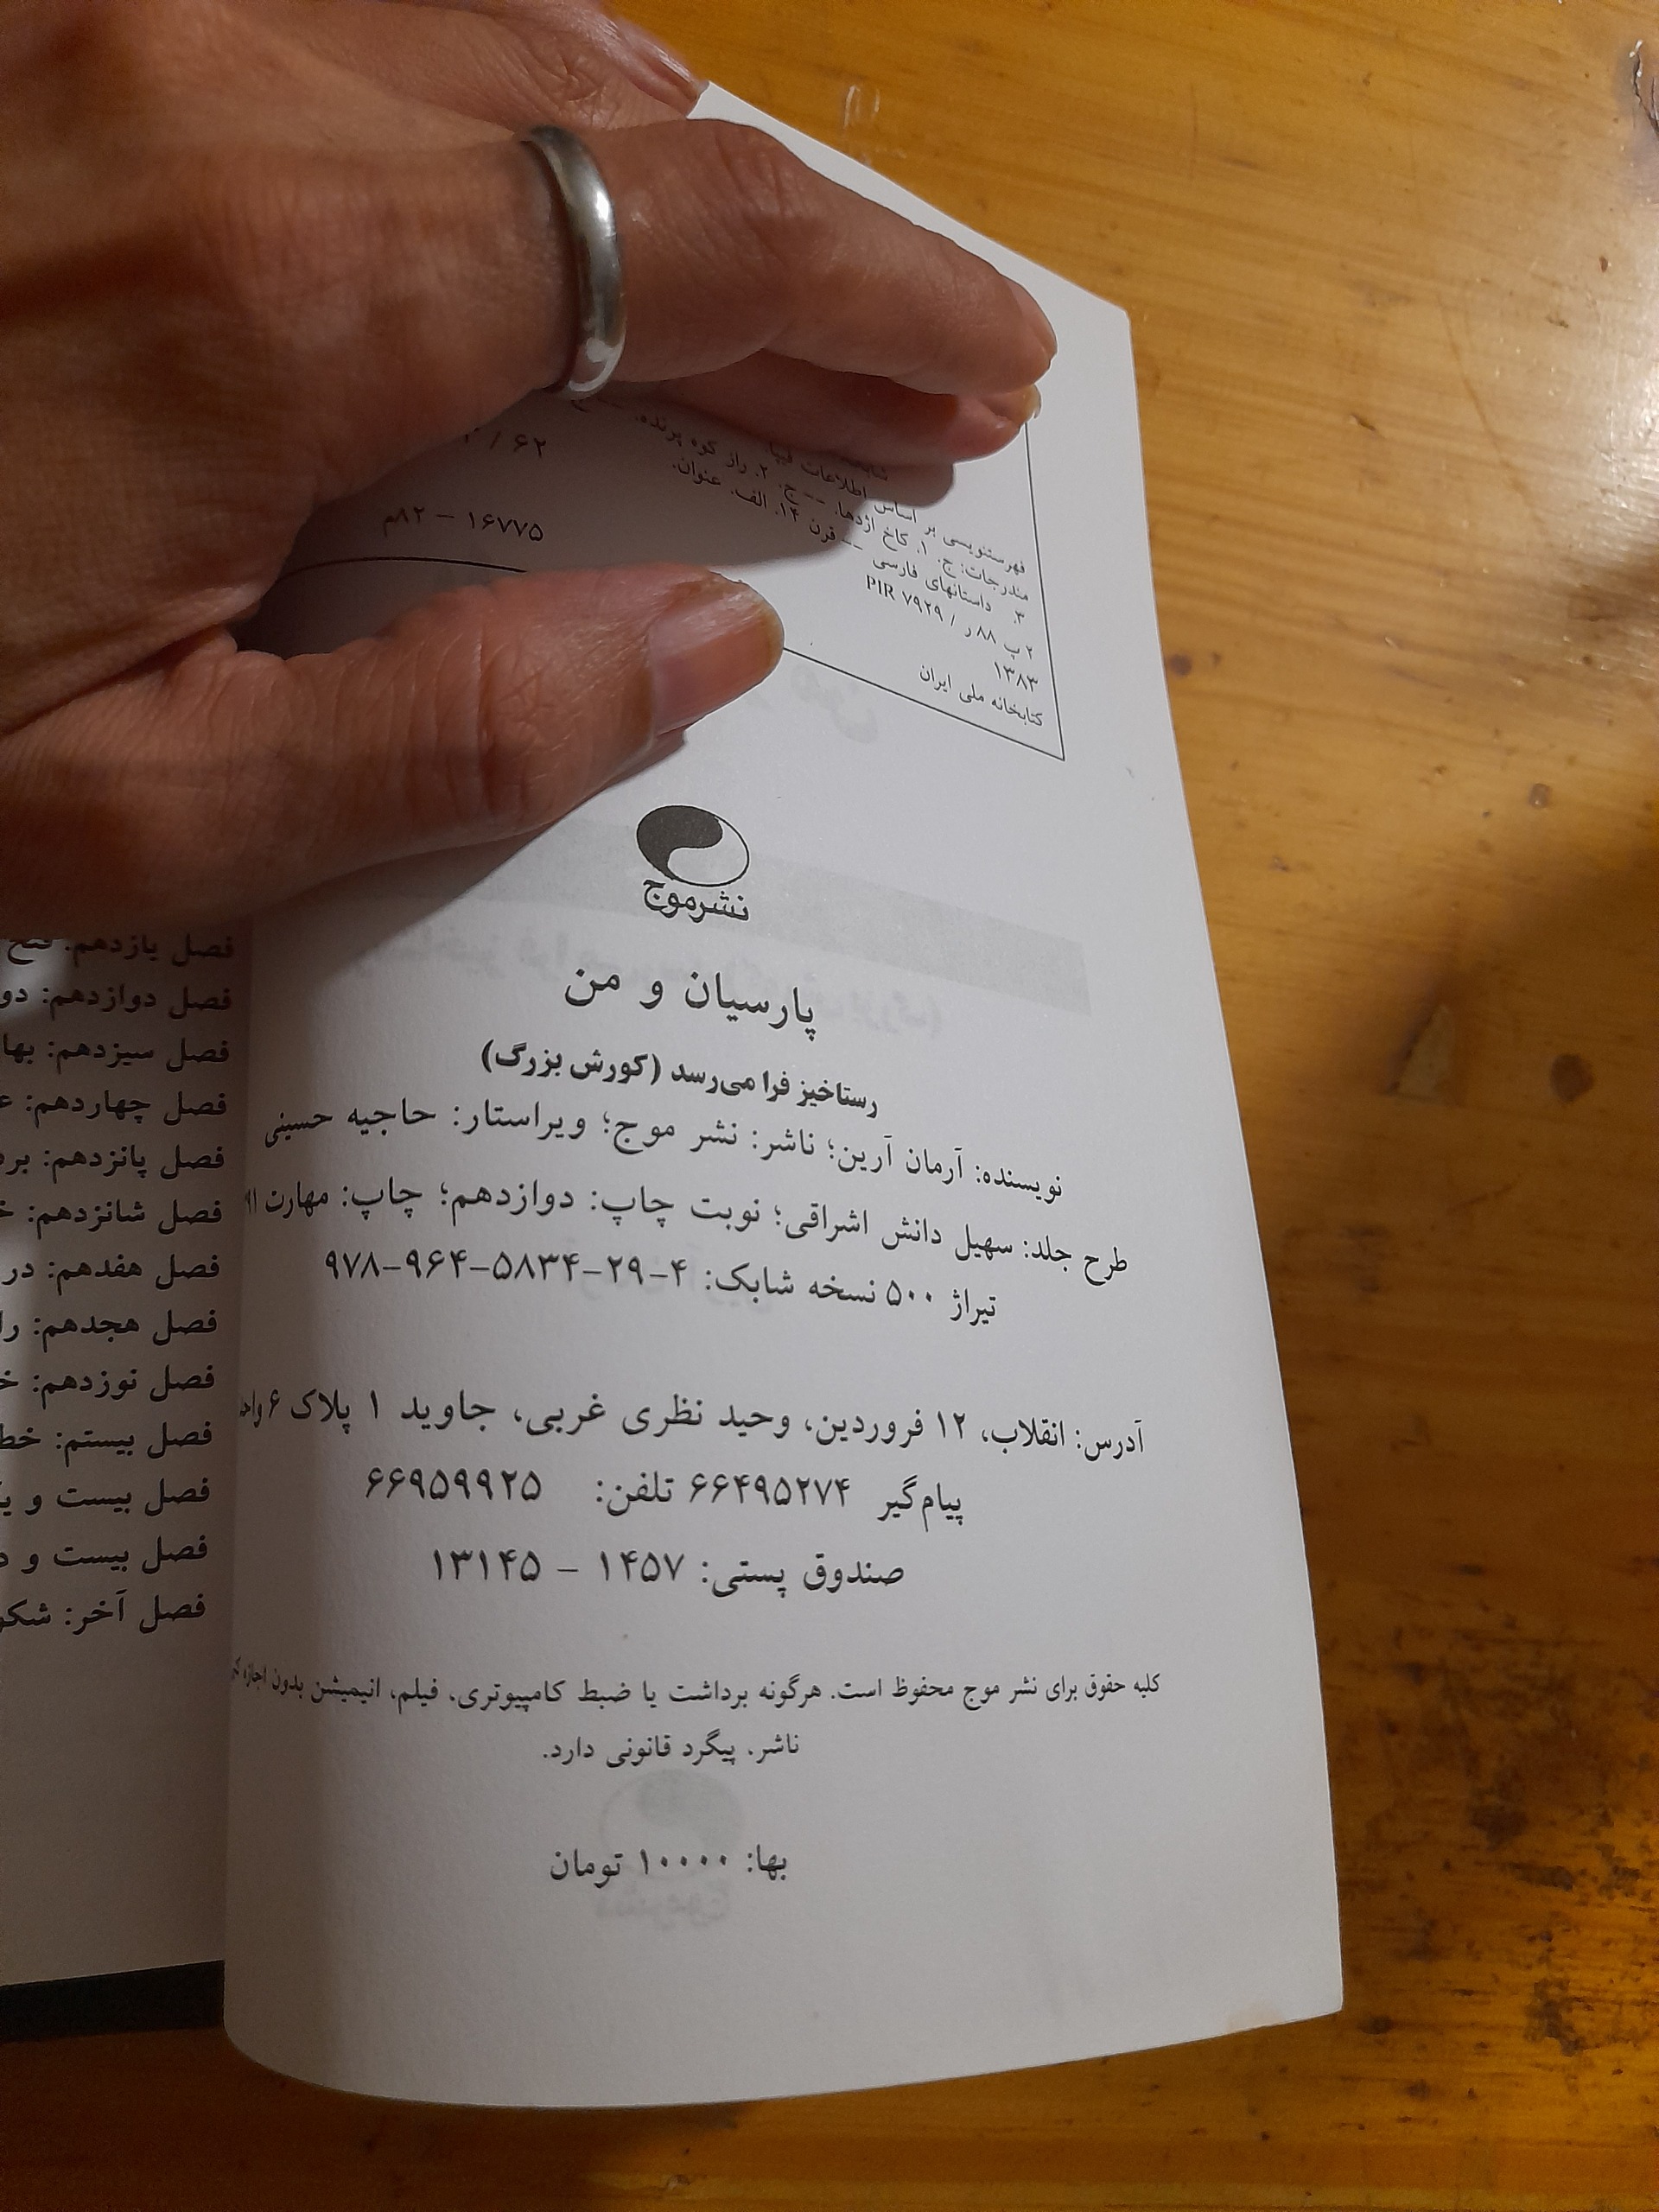 ۶۲ /
۸۲م – ۱۶۷۷۵
فهرستنویسی بر اساس اطلاعات فیپا
مندرجات: ج. ۱. کاخ اژدها. -- ج. ۲. راز کوه پرنده.
۳. داستانهای فارسی -- قرن ۱۴. الف. عنوان.
۲ پ ۸۸ ر / PIR ۷۹۲۹
۱۳۸۳
کتابخانه ملی ایران
نشر موج
پارسیان و من
رستاخیز فرا می‌رسد (کورش بزرگ)
نویسنده: آرمان آرین؛ ناشر: نشر موج؛ ویراستار: حاجیه حسینی
طرح جلد: سهیل دانش اشراقی؛ نوبت چاپ: دوازدهم؛ چاپ: مهارت ۹۱
تیراژ ۵۰۰ نسخه شابک: ۴-۲۹-۵۸۳۴-۹۶۴-۹۷۸
آدرس: انقلاب، ۱۲ فروردین، وحید نظری غربی، جاوید ۱ پلاک ۶
پیام‌گیر ۶۶۴۹۵۲۷۴ تلفن: ۶۶۹۵۹۹۲۵
صندوق پستی: ۱۴۵۷ – ۱۳۱۴۵
کلیه حقوق برای نشر موج محفوظ است. هرگونه برداشت یا ضبط کامپیوتری، فیلم، انیمیشن بدون اجازه
ناشر. پیگرد قانونی دارد.
بها: ۱۰۰۰۰ تومان
فصل یازدهم:
فصل دوازدهم:
فصل سیزدهم:
فصل چهاردهم:
فصل پانزدهم:
فصل شانزدهم:
فصل هفدهم:
فصل هجدهم:
فصل نوزدهم:
فصل بیستم:
فصل بیست و
فصل بیست و
فصل آخر: